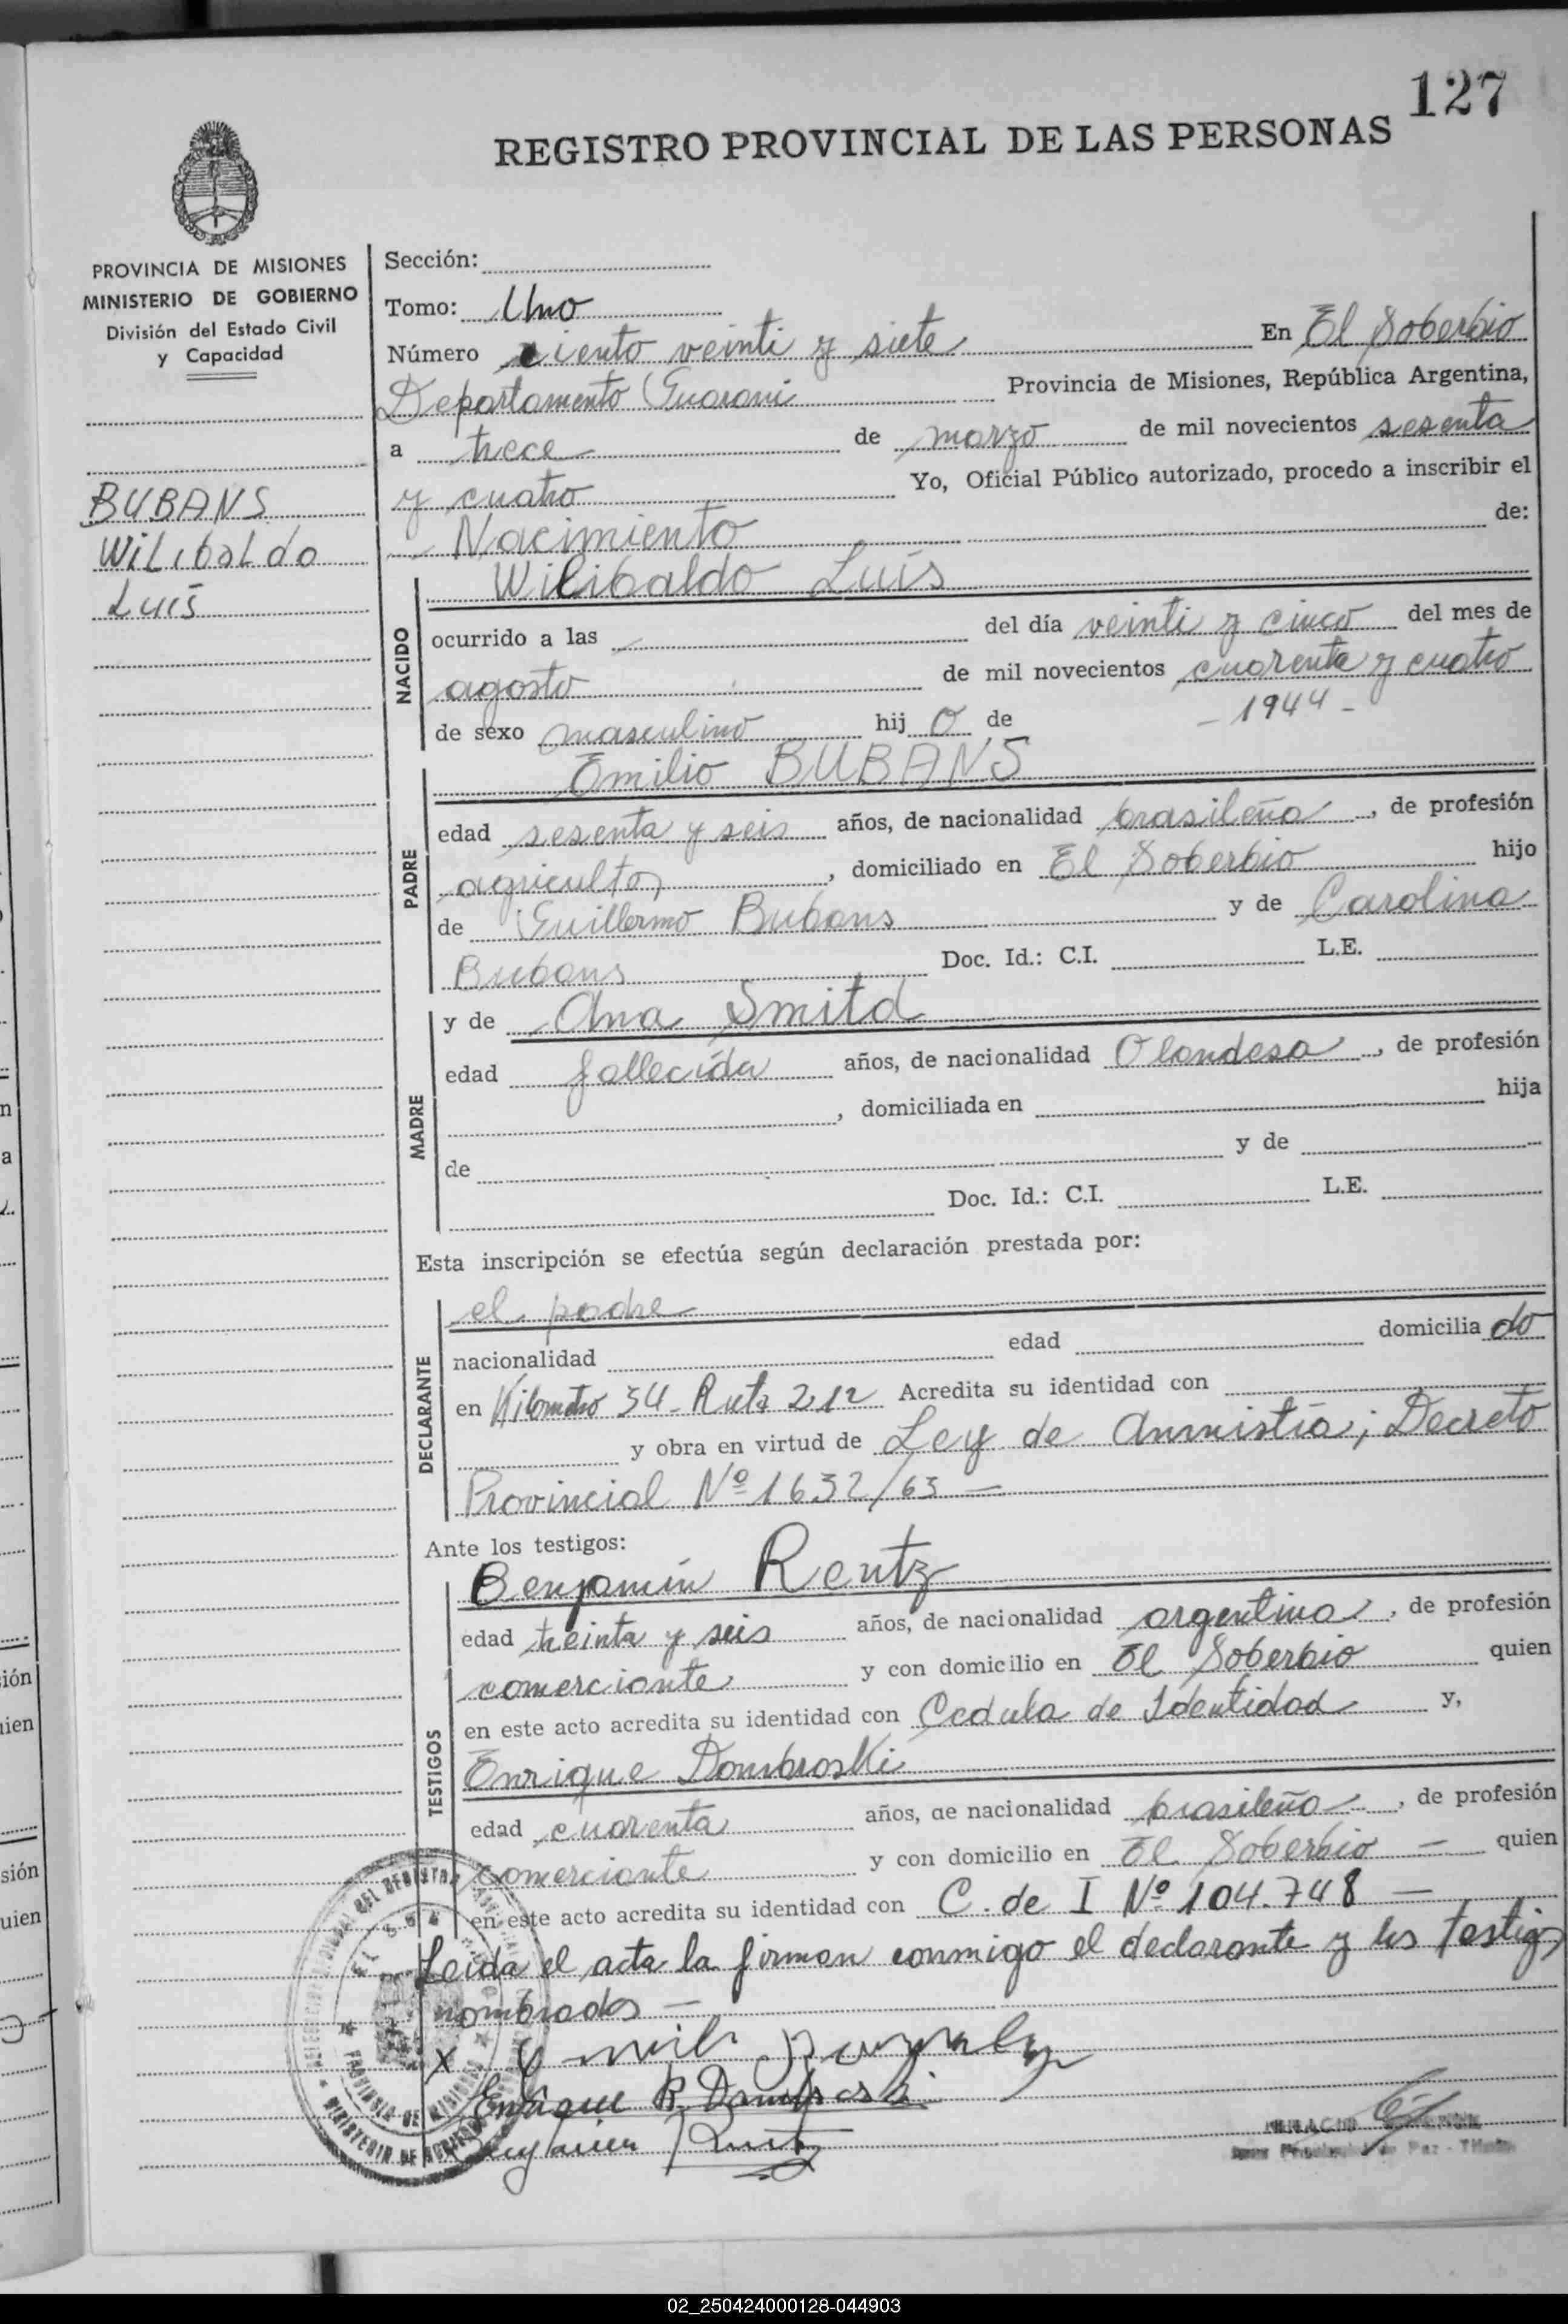 127
REGISTRO PROVINCIAL DE LAS PERSONAS
PROVINCIA DE MISIONES
MINISTERIO DE GOBIERNO
División del Estado Civil
y Capacidad
BUBANS
WiLibaLdo
Luis
Sección:
Tomo: Uno
Número ciento veinti y siete En El Soberbio
Departamento Guarani Provincia de Misiones, República Argentina,
a trece de marzo de mil novecientos sesenta
y cuatro Yo, Oficial Público autorizado, procedo a inscribir el
Nacimiento de:
NACIDO
Wilibaldo Luis
ocurrido a las — del día veinti y cinco del mes de
agosto de mil novecientos cuarenta y cuatro
- 1944 -
de sexo masculino hij o de
PADRE
Emilio BUBANS
edad sesenta y seis años, de nacionalidad brasileña, de profesión
agricultor, domiciliado en El Soberbio hijo
de Guillermo Bubans y de Carolina
Bubans Doc. Id.: C.I. L.E.
MADRE
y de Ana Smitd
edad fallecida años, de nacionalidad Olandesa, de profesión
, domiciliada en hija
de y de
Doc. Id.: C.I. L.E.
Esta inscripción se efectúa según declaración prestada por:
DECLARANTE
el padre
nacionalidad edad domicilia do
en Kilometro 34 - Ruta 212 Acredita su identidad con
y obra en virtud de Ley de Anmistía; Decreto
Provincial Nº 1632/63 —
Ante los testigos:
TESTIGOS
Benjamín Rentz
edad treinta y seis años, de nacionalidad argentina, de profesión
comerciante y con domicilio en El Soberbio quien
en este acto acredita su identidad con Cedula de Identidad y,
Enrique Dombroski
edad cuarenta años, de nacionalidad brasileña, de profesión
comerciante y con domicilio en El Soberbio — quien
en este acto acredita su identidad con C. de I Nº 104.748 —
Leida el acta la firman conmigo el declarante y los testigos
nombrados —
x
Enrique R.
PROVINCIA DE MISIONES
MINISTERIO DE GOBIERNO
02_250424000128-044903